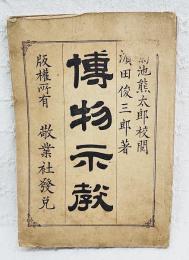 菊池熊太郎校閲
濱田俊三郎著
博物示教
版權所有　敬業社發兌